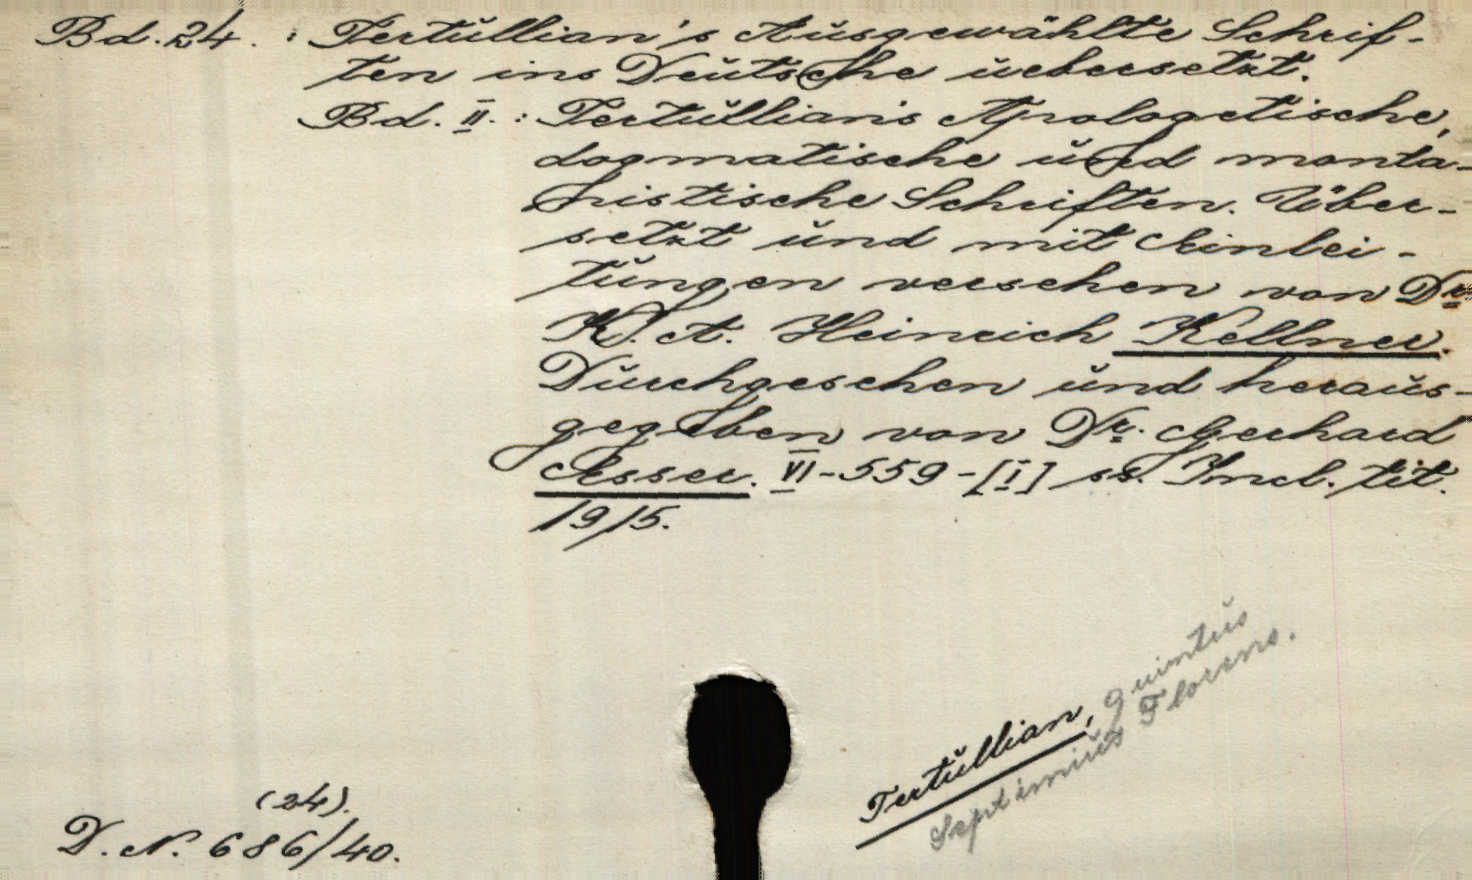 Bd. 24. : Tertullian's Ausgewählte Schrif-
ten ins Deutsche uebersetzt.
Bd. II. : Tertullians Apologetische,
dogmatische und monta-
nistische Schriften. Über-
setzt und mit Einlei-
tungen versehen von Dr.
K. A. Heinrich Kellner.
Durchgesehen und heraus-
gegeben von Dr. Gerhard
Esser. VI-559-[I] ss. Incl. tit.
1915.
Tertullian, Quintus
Septimius Florens.
(24).
D. N. 686/40.